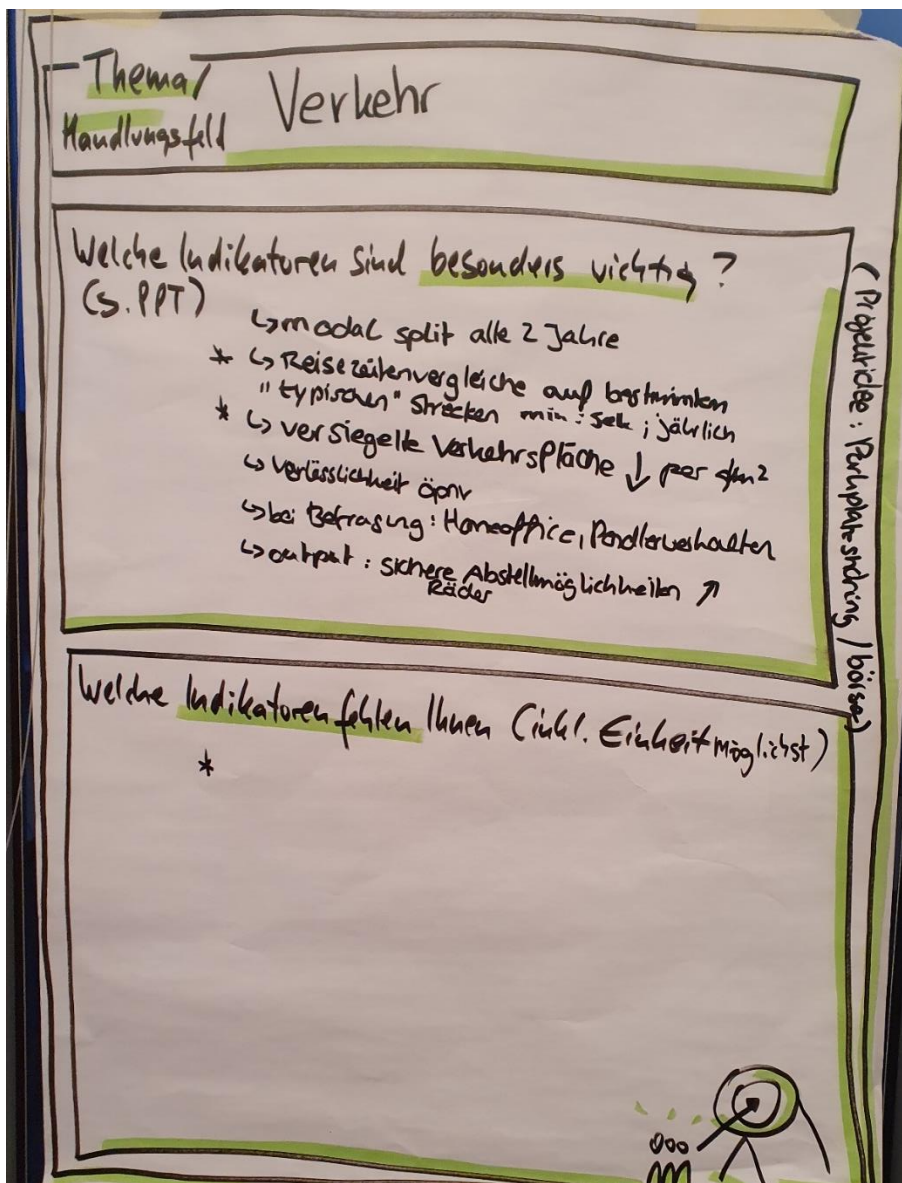 Thema/
Handlungsfeld
Verkehr
Welche Indikatoren sind besonders wichtig?
(s. PPT)
↳ modal split alle 2 Jahre
* ↳ Reisezeitenvergleiche auf bestimmten
"typischen" Strecken min : sek ; jährlich
* ↳ versiegelte Verkehrsfläche ↓ per qm2
↳ Verlässlichkeit öpnv
↳ bei Befragung: Homeoffice, Pendlerverhalten
↳ output : sichere Abstellmöglichkeiten ↗
Räder
(Projektidee: Parkplatzsharing / börse)
Welche Indikatoren fehlen Ihnen (inkl. Einheit möglichst)
*